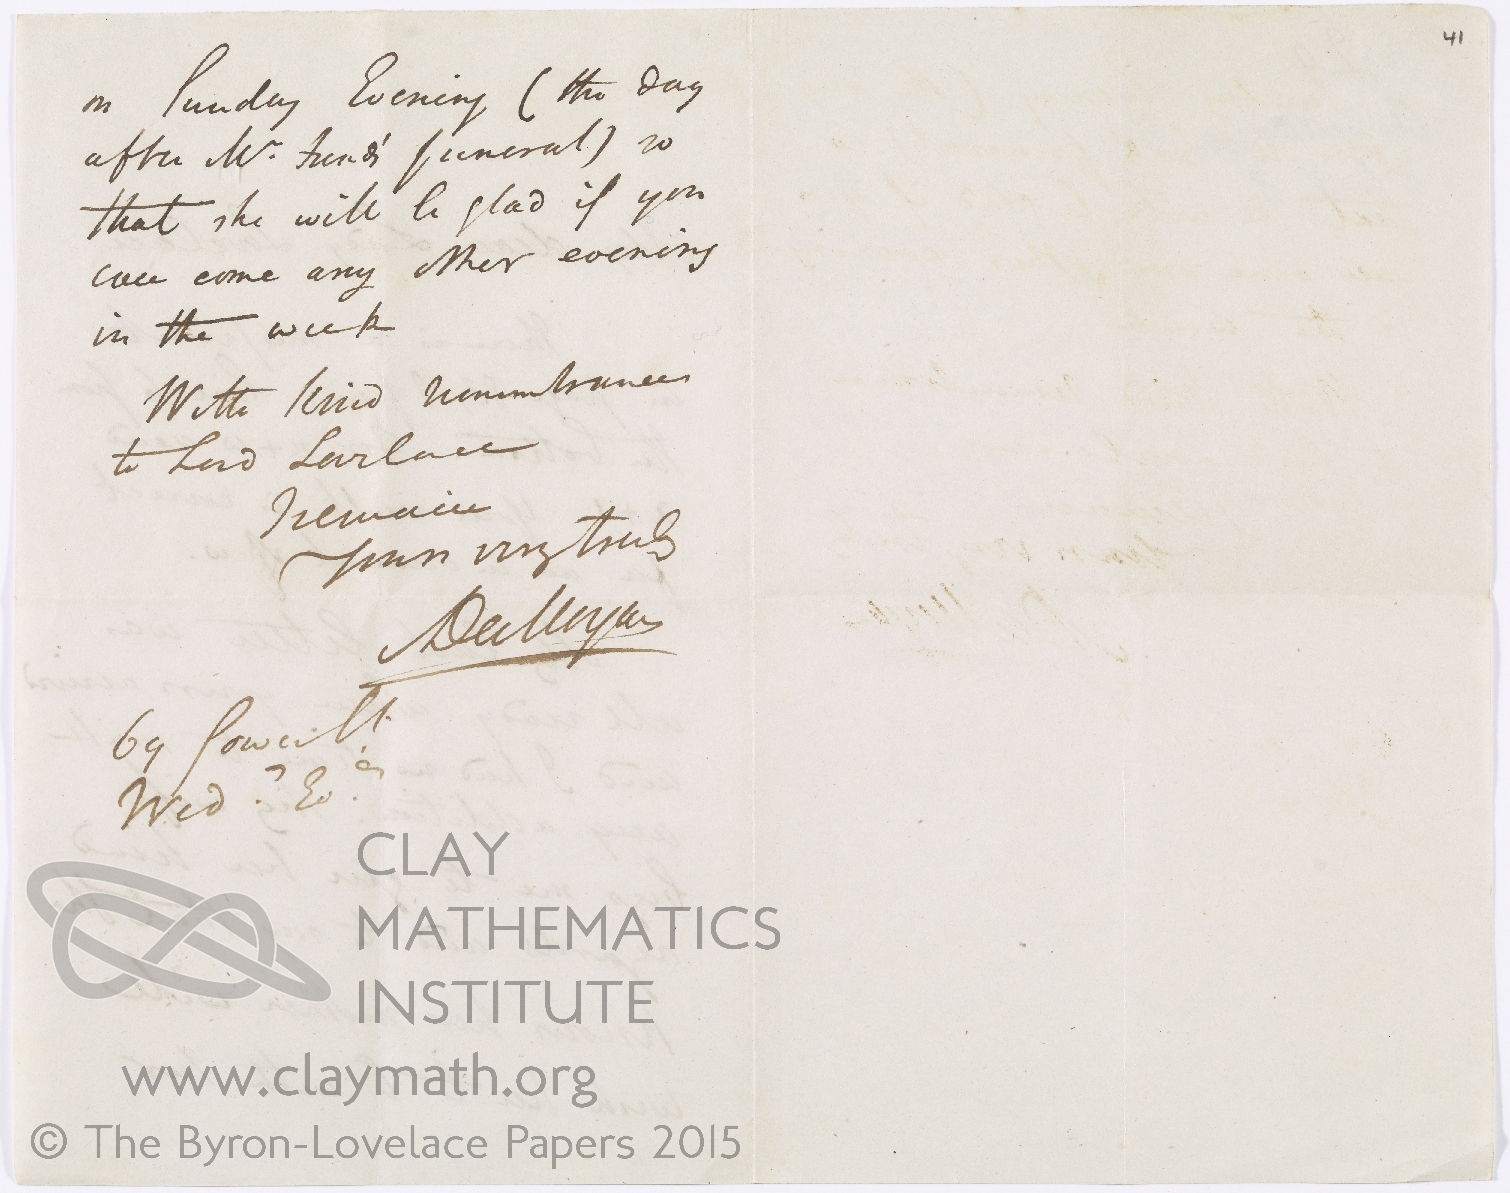 41
on Sunday Evening (the day
after Mr. Frend's funeral) so
that she will be glad if you
can come any other evening
in the week
With kind remembrances
to Lord Lovelace
I remain
Yours very truly
ADeMorgan
69 Gower St.
Wed.y Ev.g
CLAY
MATHEMATICS
INSTITUTE
www.claymath.org
© The Byron-Lovelace Papers 2015